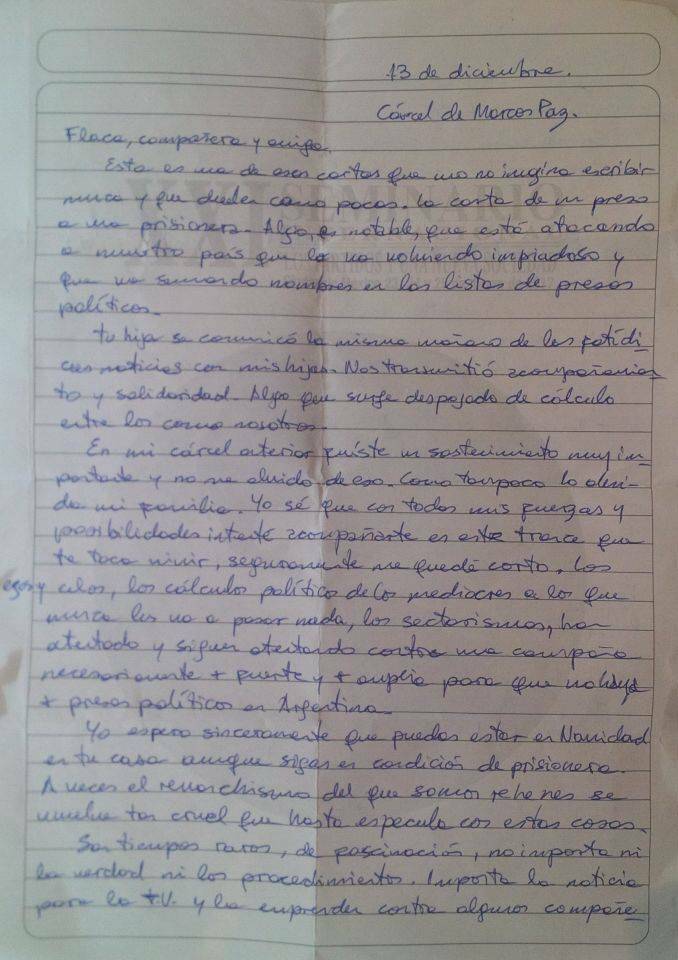 13 de diciembre.
Cárcel de Marcos Paz.
Flaca, compañera y amiga.
Esta es una de esas cartas que uno no imagina escribir
nunca y que duelen como pocas. La carta de un preso
a una prisionera. Algo, es notable, que está atacando
a nuestro país que lo va volviendo impiadoso y
que va sumando nombres en las listas de presos
políticos.
Tu hija se comunicó la misma mañana de las fatídi
cas noticias con mis hijas. Nos transmitió acompañamien
to y solidaridad. Algo que surge despojado de cálculo
entre los como nosotros.
En mi cárcel anterior fuiste un sostenimiento muy im
portante y no me olvido de eso. Como tampoco lo olvi
da mi familia. Yo sé que con todas mis fuerzas y
posibilidades intenté acompañarte en este trance que
te toca vivir, seguramente me quedé corto. Los
egos y celos, los cálculos político de los mediocres a los que
nunca les va a pasar nada, los sectarismos, han
atentado y siguen atentando contra una campaña
necesariamente + fuerte y + amplia para que no haya
+ presos políticos en Argentina.
Yo espero sinceramente que puedas estar en Navidad
en tu casa aunque sigas en condición de prisionera.
A veces el revanchismo del que somos rehenes se
vuelve tan cruel que hasta especula con estas cosas.
Son tiempos raros, de fascinación, no importa ni
la verdad ni los procedimientos. Importa la noticia
para la T.V. y la emprenden contra algunos compañe
XXI SEMINARIO